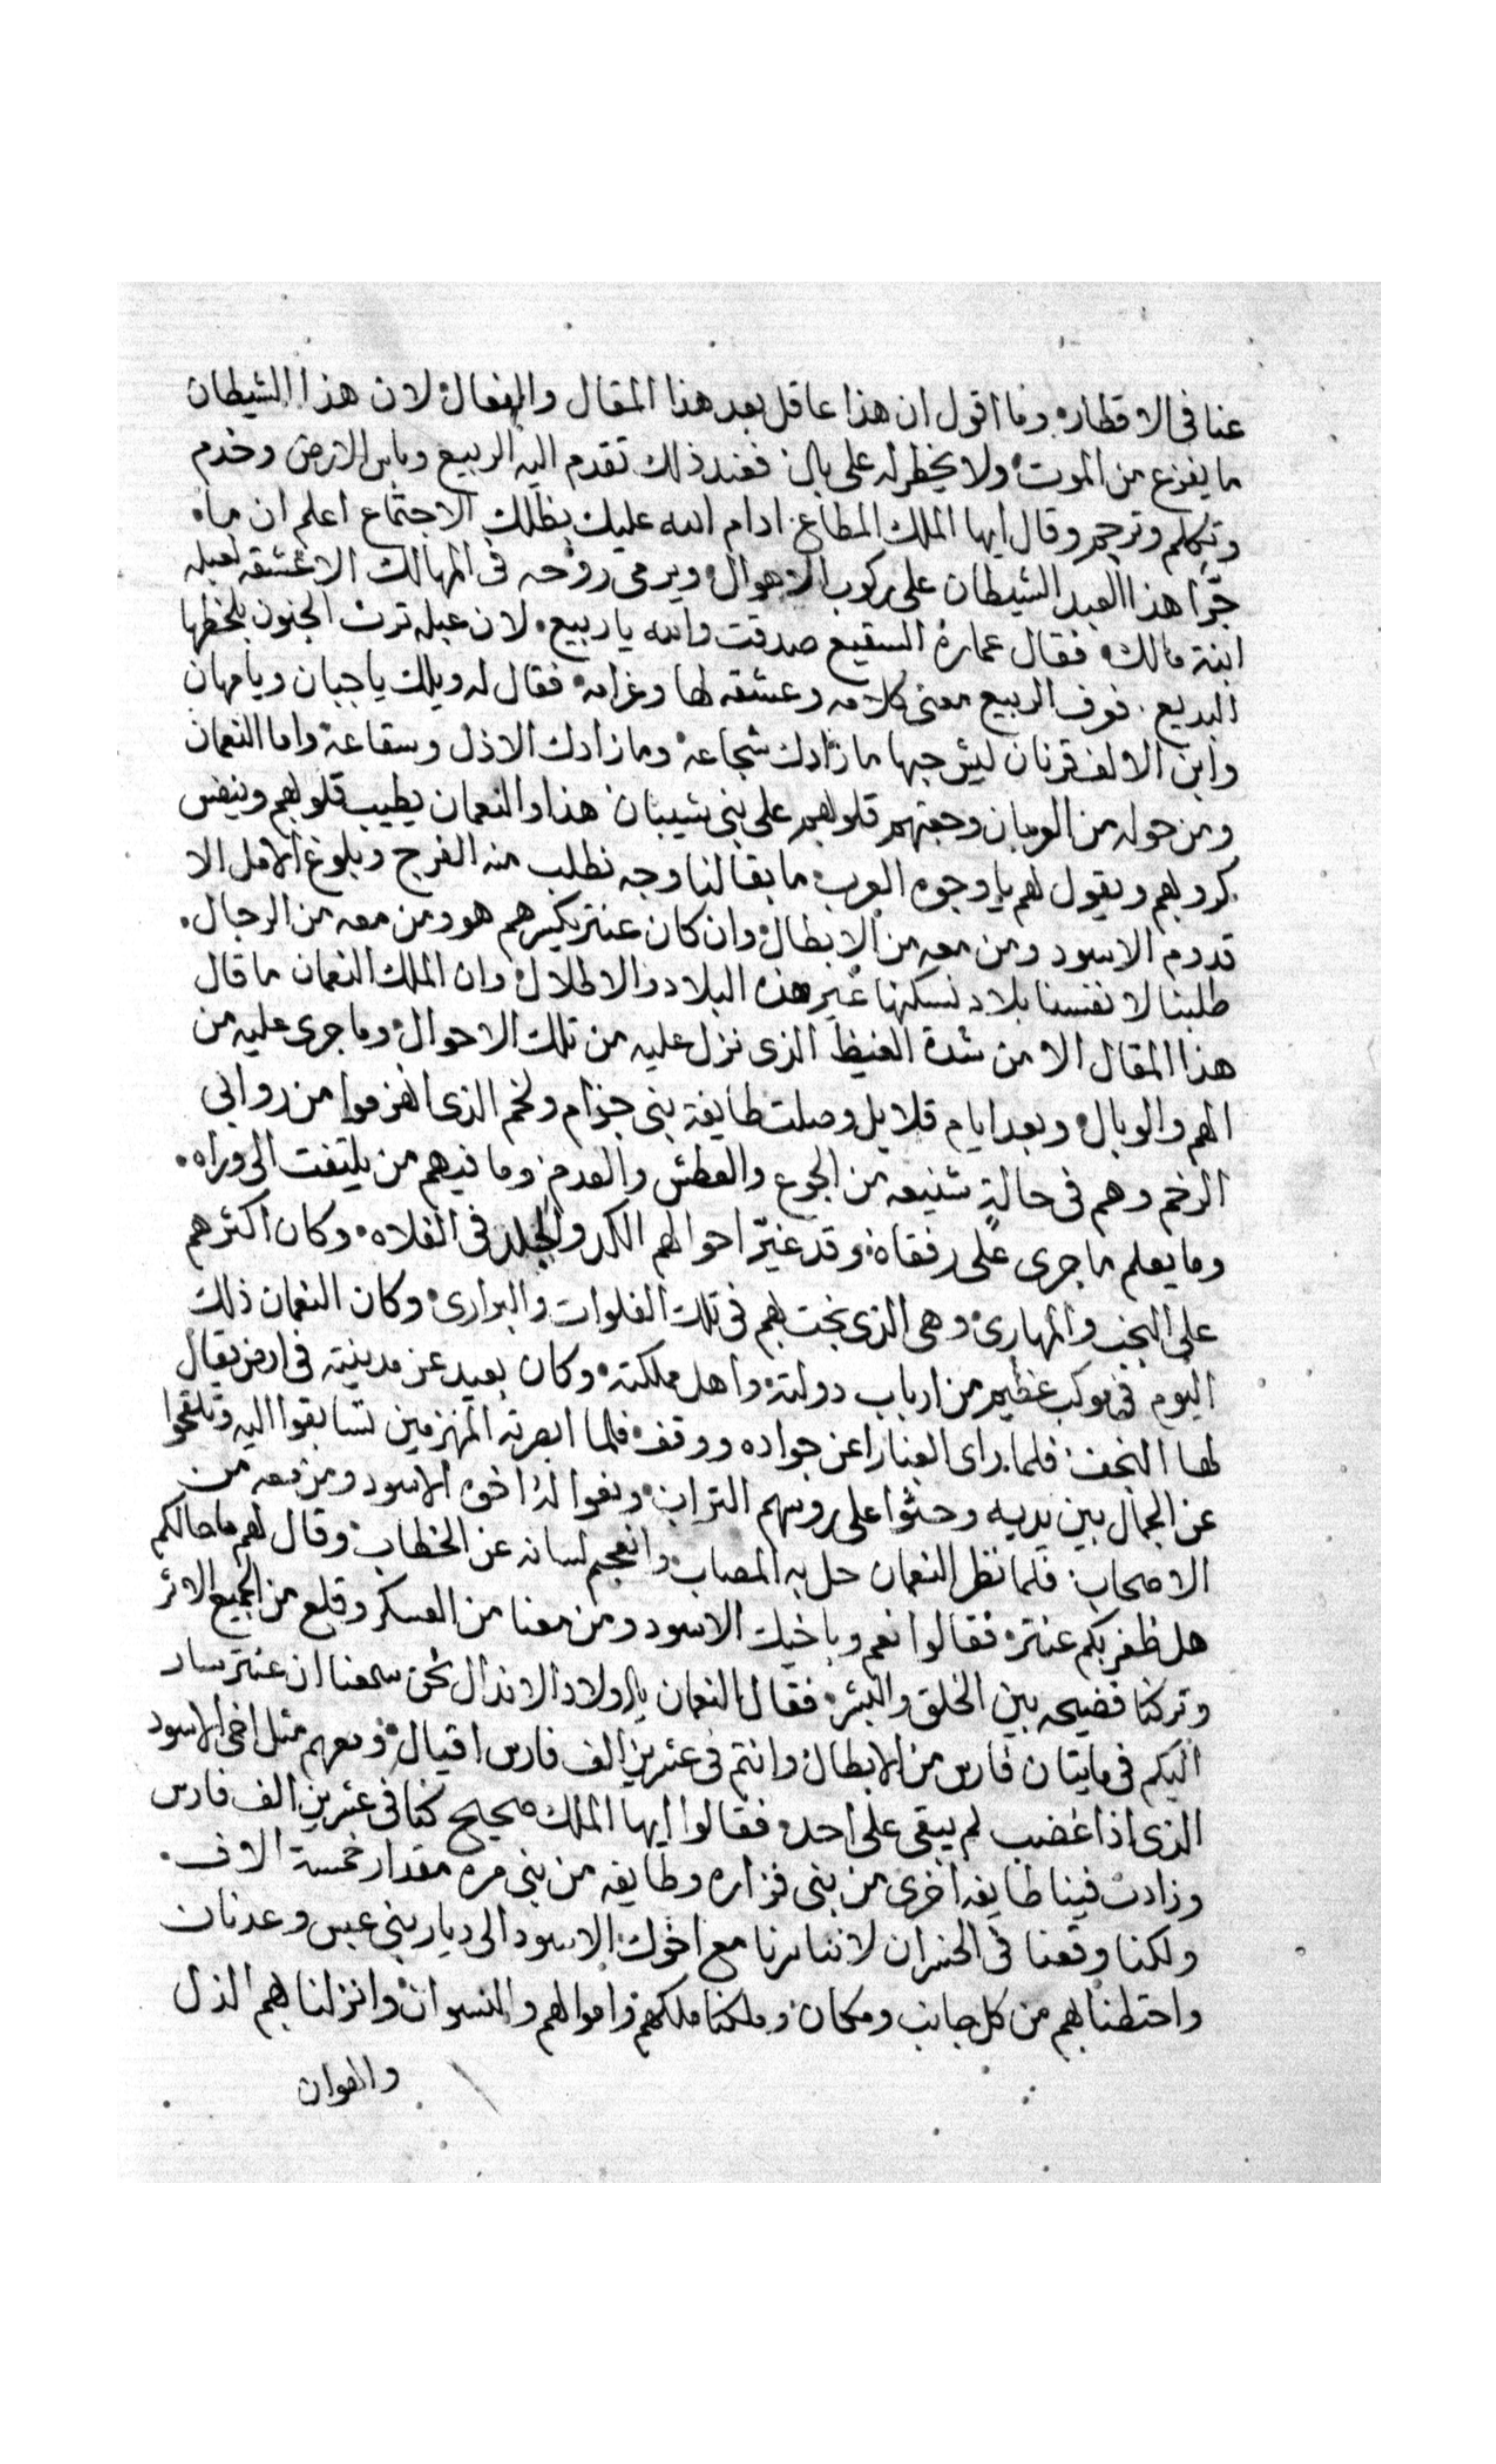 عنا فى الاقطار وما اقول ان هذا عاقل بعد هذا المقال والفعال لان هذا الشيطان
ما يفزع من الموت ولا يخطر له على بال فعند ذلك تقدم اليه الربيع وباس الارض وخدم
وتكلم وترجم وقال ايها الملك المطاع ادام الله عليك بظلك الاجتماع اعلم ان ما
جرّا هذا العبد الشيطان على ركوب الاهوال ويرمى روحه فى المهالك الا عشقه لعبله
ابنة مالك فقال عمارة السقيع صدقت والله يا ربيع لان عبله ترث الجنون بلحظها
البديع فعرف الربيع معنى كلامه وعشقه لها وغرامه فقال له ويلك يا جبان ويا مهان
وابن الالف قرنان ليش حبها ما زادك شجاعة وما زادك الا ذل وسقاعة واما النعمان
ومن حوله من العربان وجعتهم قلوبهم على بنى شيبان هذا والنعمان يطيب قلوبهم وينفس
كروبهم ويقول لهم يا وجوه العرب ما بقا لنا وجه نطلب منه الفرج وبلوغ الامل الا
قدوم الاسود ومن معه من الابطال وان كان عنتر يكسرهم هو ومن معه من الرجال
طلبنا لانفسنا بلاد نسكنها غير هذه البلاد والاطلال وان الملك النعمان ما قال
هذا المقال الا من شدة الغيظ الذى نزل عليه من تلك الاحوال وما جرى عليه من
الهم والوبال وبعد ايام قلايل وصلت طايفة بنى جذام ولخم الذى انهزموا من روابى
الرخم وهم فى حالةٍ شنيعه من الجوع والعطش والعدم وما فيهم من يلتفت الى وراه
وما يعلم ما جرى على رفقاه وقد غيّر احوالهم الكد والجلد فى الفلاه وكان اكثرهم
على البخت والمهارى وهى الذى نجت بهم فى تلك الفلوات والبرارى وكان النعمان ذلك
اليوم فى موكب عظيم من ارباب دولته واهل مملكته وكان بعيد عن مدينته فى ارض يقال
لها النجف فلما راى الغبار اعن جواده ووقف فلما ابصرته المنهزمين تسابقوا اليه وتلقحوا
عن الجمال بين يديه وحثوا على روسهم التراب ونعوا له اخوه الاسود ومن معه من
الاصحاب فلما نظر النعمان حل به المصاب وانعجم لسانه عن الخطاب وقال لهم ما حالكم
هل ظفر بكم عنتر فقالوا نعم وباخيك الاسود ومن معنا من العسكر وقلع من الجميع الاثر
وتركنا فضيحه بين الخلق والبشر فقال النعمان يا اولاد الانذال نحن سمعنا ان عنتر سار
اليكم فى مايتان فارس من الابطال وانتم فى عشرين الف فارس اقيال ومعهم مثل اخى الاسود
الذى اذا غضب لم يبقى على احد فقالوا ايها الملك صحيح كنا فى عشرين الف فارس
وزادت فينا طايفه اخرى من بنى فزاره وطايفه من بنى مره مقدار خمسة الاف
ولكنا وقعنا فى الخسران لاننا سرنا مع اخوك الاسود الى ديار بنى عبس وعدنان
واحتطنا بهم من كل جانب ومكان وملكنا ملكهم واموالهم والنسوان وانزلنا بهم الذل
والهوان